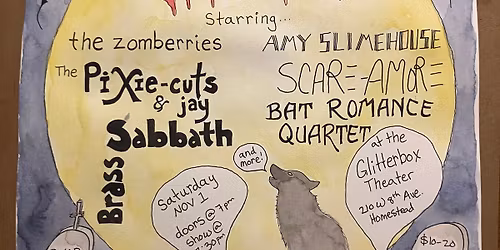 Starring...
the zomberries
The Pixie-cuts
& jay
Brass Sabbath
AMY SLIMEHOUSE
SCARE-AMORE
BAT ROMANCE
QUARTET
and
more!
Saturday
NOV 1
doors @ 7pm
show @
:30pm
at the
Glitterbox
Theater
210 W 8th Ave.
Homestead
$10-20